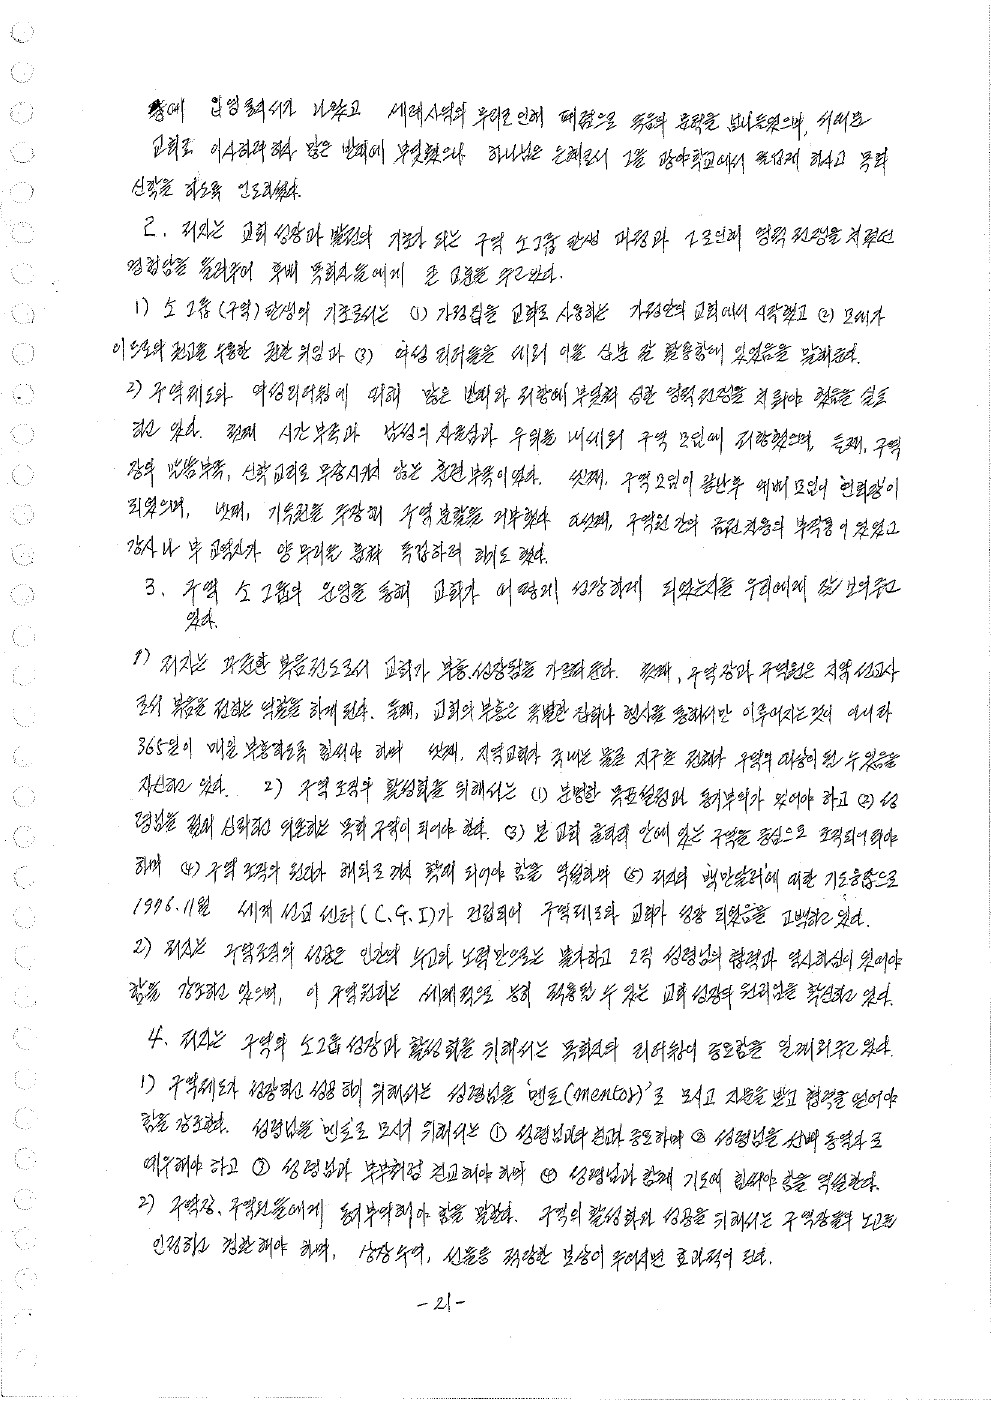 중에 입영통지서가 나왔고 세례사역의 무리로 인해 폐렴으로 죽음의 문턱을 넘나들었으며, 서대문
교회로 이사하려하자 많은 반대에 부딪혔으나 하나님은 은혜로서 그를 광야학교에서 졸업케 하시고 목회
신학을 하도록 인도하셨다.
2. 저자는 교회 성장과 발전의 기초가 되는 구역 소그룹 탄생 과정과 그로인해 영적 전쟁을 치루었던
경험담을 들려주어 후배 목회자들에게 큰 교훈을 주고있다.
1) 소그룹(구역)탄생의 기초로서는 (1) 가정집을 교회로 사용하는 가정안의 교회에서 시작했고 (2) 모세가
이드로의 권고를 수용한 권한위임과 (3) 여성 리더들을 세워 이를 십분 잘 활용함에 있었음을 말해준다.
2) 구역제도와 여성리더쉽에 대해 많은 반대와 저항에 부딪쳐 심한 영적전쟁을 치뤄야 했음을 실토
하고 있다. 첫째 시간부족과 남성의 자존심과 우위를 내세워 구역 모임에 저항했으며, 둘째, 구역
장의 말씀부족, 신학교리로 무장시키지 않는 훈련부족이었다. 셋째, 구역모임이 끝난후 예배모임이 '연회장'이
되었으며, 넷째, 기득권을 주장해 구역분할을 거부했다. 다섯째, 구역원간의 금전차용의 부작용이 있었고
강사나 부교역자가 양무리를 흩쳐 독립하려 하기도 했다.
3. 구역 소그룹의 운영을 통해 교회가 어떻게 성장하게 되었는지를 우리에게 잘 보여주고
있다.
1) 저자는 꾸준한 복음전도로서 교회가 부흥, 성장됨을 가르쳐준다. 첫째, 구역장과 구역원은 지역선교사
로서 복음을 전하는 역할을 하게 된다. 둘째, 교회의 부흥은 특별한 집회나 행사를 통해서만 이루어지는것이 아니라
365일이 매일 부흥회토록 힘써야 하며 셋째, 지역교회가 국내는 물론 지구촌 전체가 구역의 대상이 될 수 있음을
자신하고 있다. 2) 구역조직의 활성화를 위해서는 (1) 분명한 목표설정과 동기부여가 있어야 하고 (2) 성
령님을 전적 신뢰하고 의존하는 목회 구역이 되어야 한다. (3) 본 교회 울타리 안에 있는 구역을 중심으로 조직되어져야
하며 (4) 구역 조직의 원리가 해외로 까지 확대 되어야 함을 역설하며 (5) 저자의 '백만달러'에 대한 기도응답으로
1976.11월 세계 선교 센터(C.G.I)가 건립되어 구역제도와 교회가 성장 되었음을 고백하고 있다.
2) 저자는 구역조직의 성장은 인간의 수고와 노력만으로는 불가하고 오직 성령님의 협력과 역사하심이 있어야
함을 강조하고 있으며, 이 구역원리는 세계적으로 능히 적용될 수 있는 교회 성장의 원리임을 확신하고 있다.
4. 저자는 구역의 소그룹성장과 활성화를 위해서는 목회자의 리더쉽이 중요함을 일깨워주고 있다.
1) 구역제도가 성장하고 성공하기 위해서는 성령님을 '멘토(mentor)'로 모시고 자문을 받고 협력을 얻어야
함을 강조한다. 성령님을 '멘토'로 모시기 위해서는 ① 성령님과의 친교가 중요하며 ② 성령님을 선배 동역자로
예우해야 하고 ③ 성령님과 부부처럼 친교해야 하며 ④ 성령님과 함께 기도에 힘써야 함을 역설한다.
2) 구역장, 구역원들에게 동기부여해야 함을 말한다. 구역의 활성화와 성공을 위해서는 구역장들의 노고를
인정하고 칭찬해야 하며, 상장수여, 선물등 적당한 보상이 주어지면 효과적이 된다.
-21-